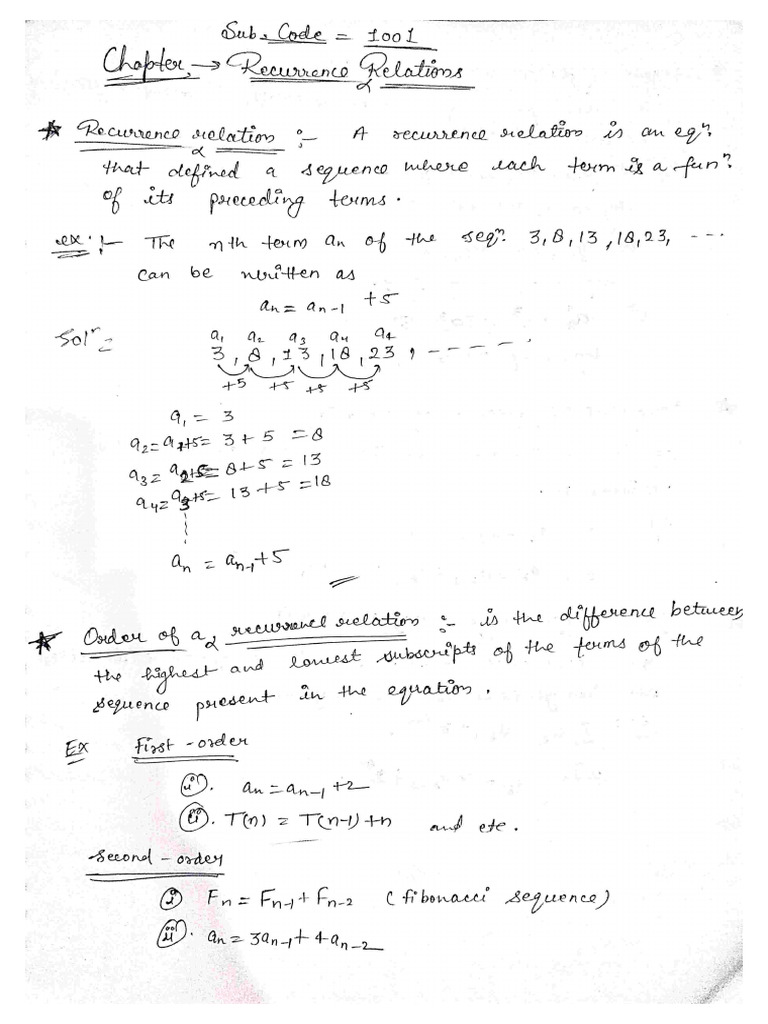 Sub. Code = 1001
Chapter → Recurrence Relations
* Recurrence relation :- A recurrence relation is an eqn.
that defined a sequence where each term is a fun?
of its preceding terms.
ex. :- The nth term an of the seqn. 3,8,13,18,23, ---
can be written as
an = an-1 +5
Soln =
a1 a2 a3 a4 a4
3, 8, 13, 18, 23, -----.
+5 +5 +5 +5
a1 = 3
a2 = a1+5 = 3+5 = 8
a3 = a2+5 = 8+5 = 13
a4 = a3+5 = 13+5 = 18
an = an-1+5
* Order of a recurrence relation :- is the difference between
the highest and lowest subscripts of the terms of the
sequence present in the equation.
Ex First-order
(i). an = an-1 +2
(ii). T(n) = T(n-1)+n and etc.
Second-order
(i) Fn = Fn-1 + Fn-2 (fibonacci sequence)
(ii). an = 3an-1 + 4an-2